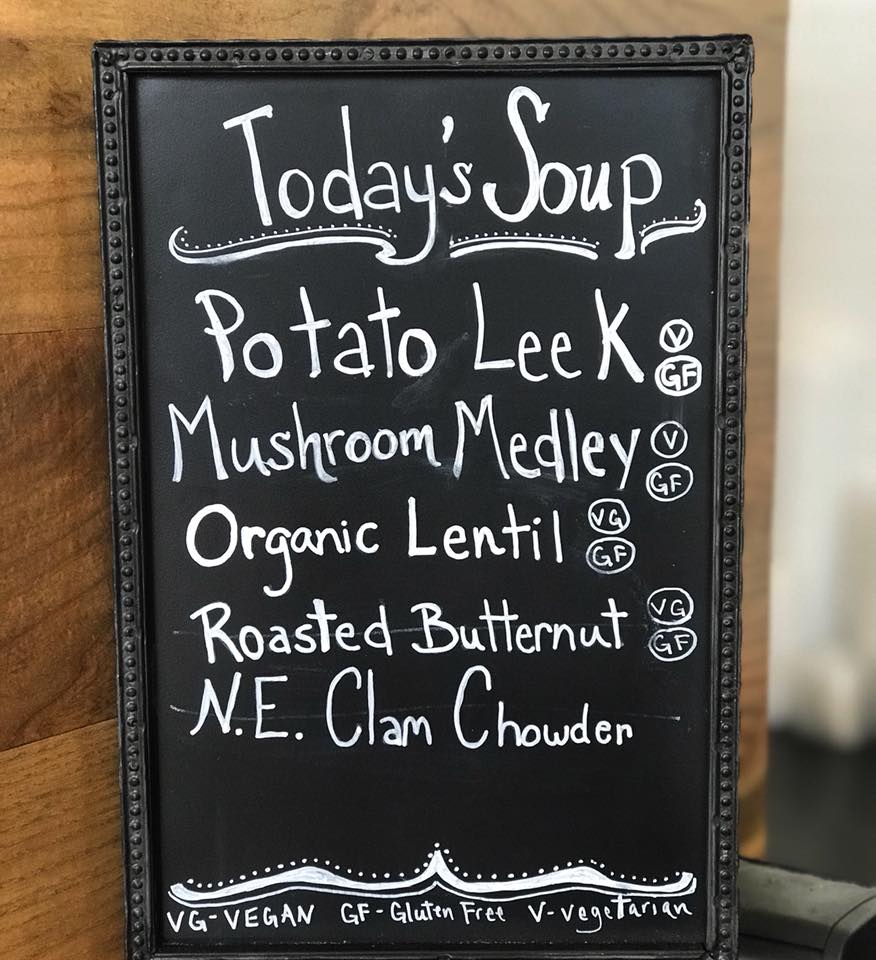 Today's Soup
Potato Leek V GF
Mushroom Medley V GF
Organic Lentil VG GF
Roasted Butternut VG GF
N.E. Clam Chowder
VG-VEGAN GF-Gluten Free V-vegetarian